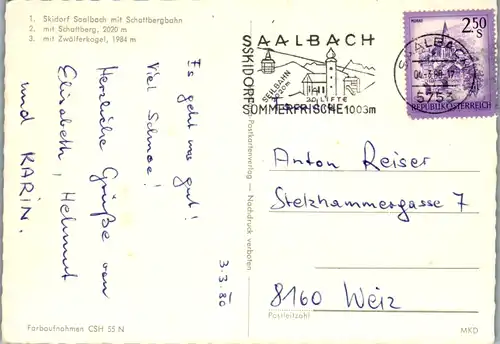 1. Skidorf Saalbach mit Schattbergbahn
2. mit Schattberg, 2020 m
3. mit Zwölferkogel, 1984 m
Es geht uns gut!
Viel Schnee!
Herzliche Grüße von
Elisabeth, Helmut
und KARIN.
3.3.80
Farbaufnahmen CSH 55 N
Postkartenverlag — Nachdruck verboten
SAALBACH
SKIDORF
SEILBAHN
2020m
40 LIFTE
SOMMERFRISCHE 1003m
SAALBACH
04.-3.80-17
5753
MURAU
2.50
S
REPUBLIK ÖSTERREICH
Anton Reiser
Stelzhammergasse 7
8160 Weiz
Postleitzahl
MKD